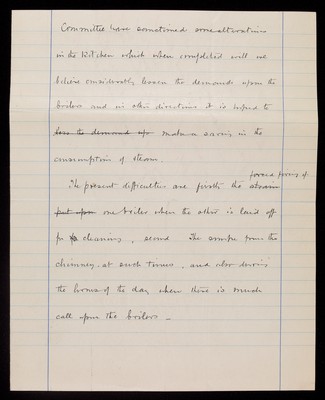 Committee have sanctioned some alterations
in the Kitchen which when completed will we
believe considerably lessen the demands upon the
boilers and in other directions it is hoped to
less the demand upo make a saving in the
consumption of steam.
forced firing of
The present difficulties are firstly the strain
put upon one boiler when the other is laid off
for cleaning, second the smoke from the
chimney at such times, and also during
the hours of the day when there is much
call upon the boilers —